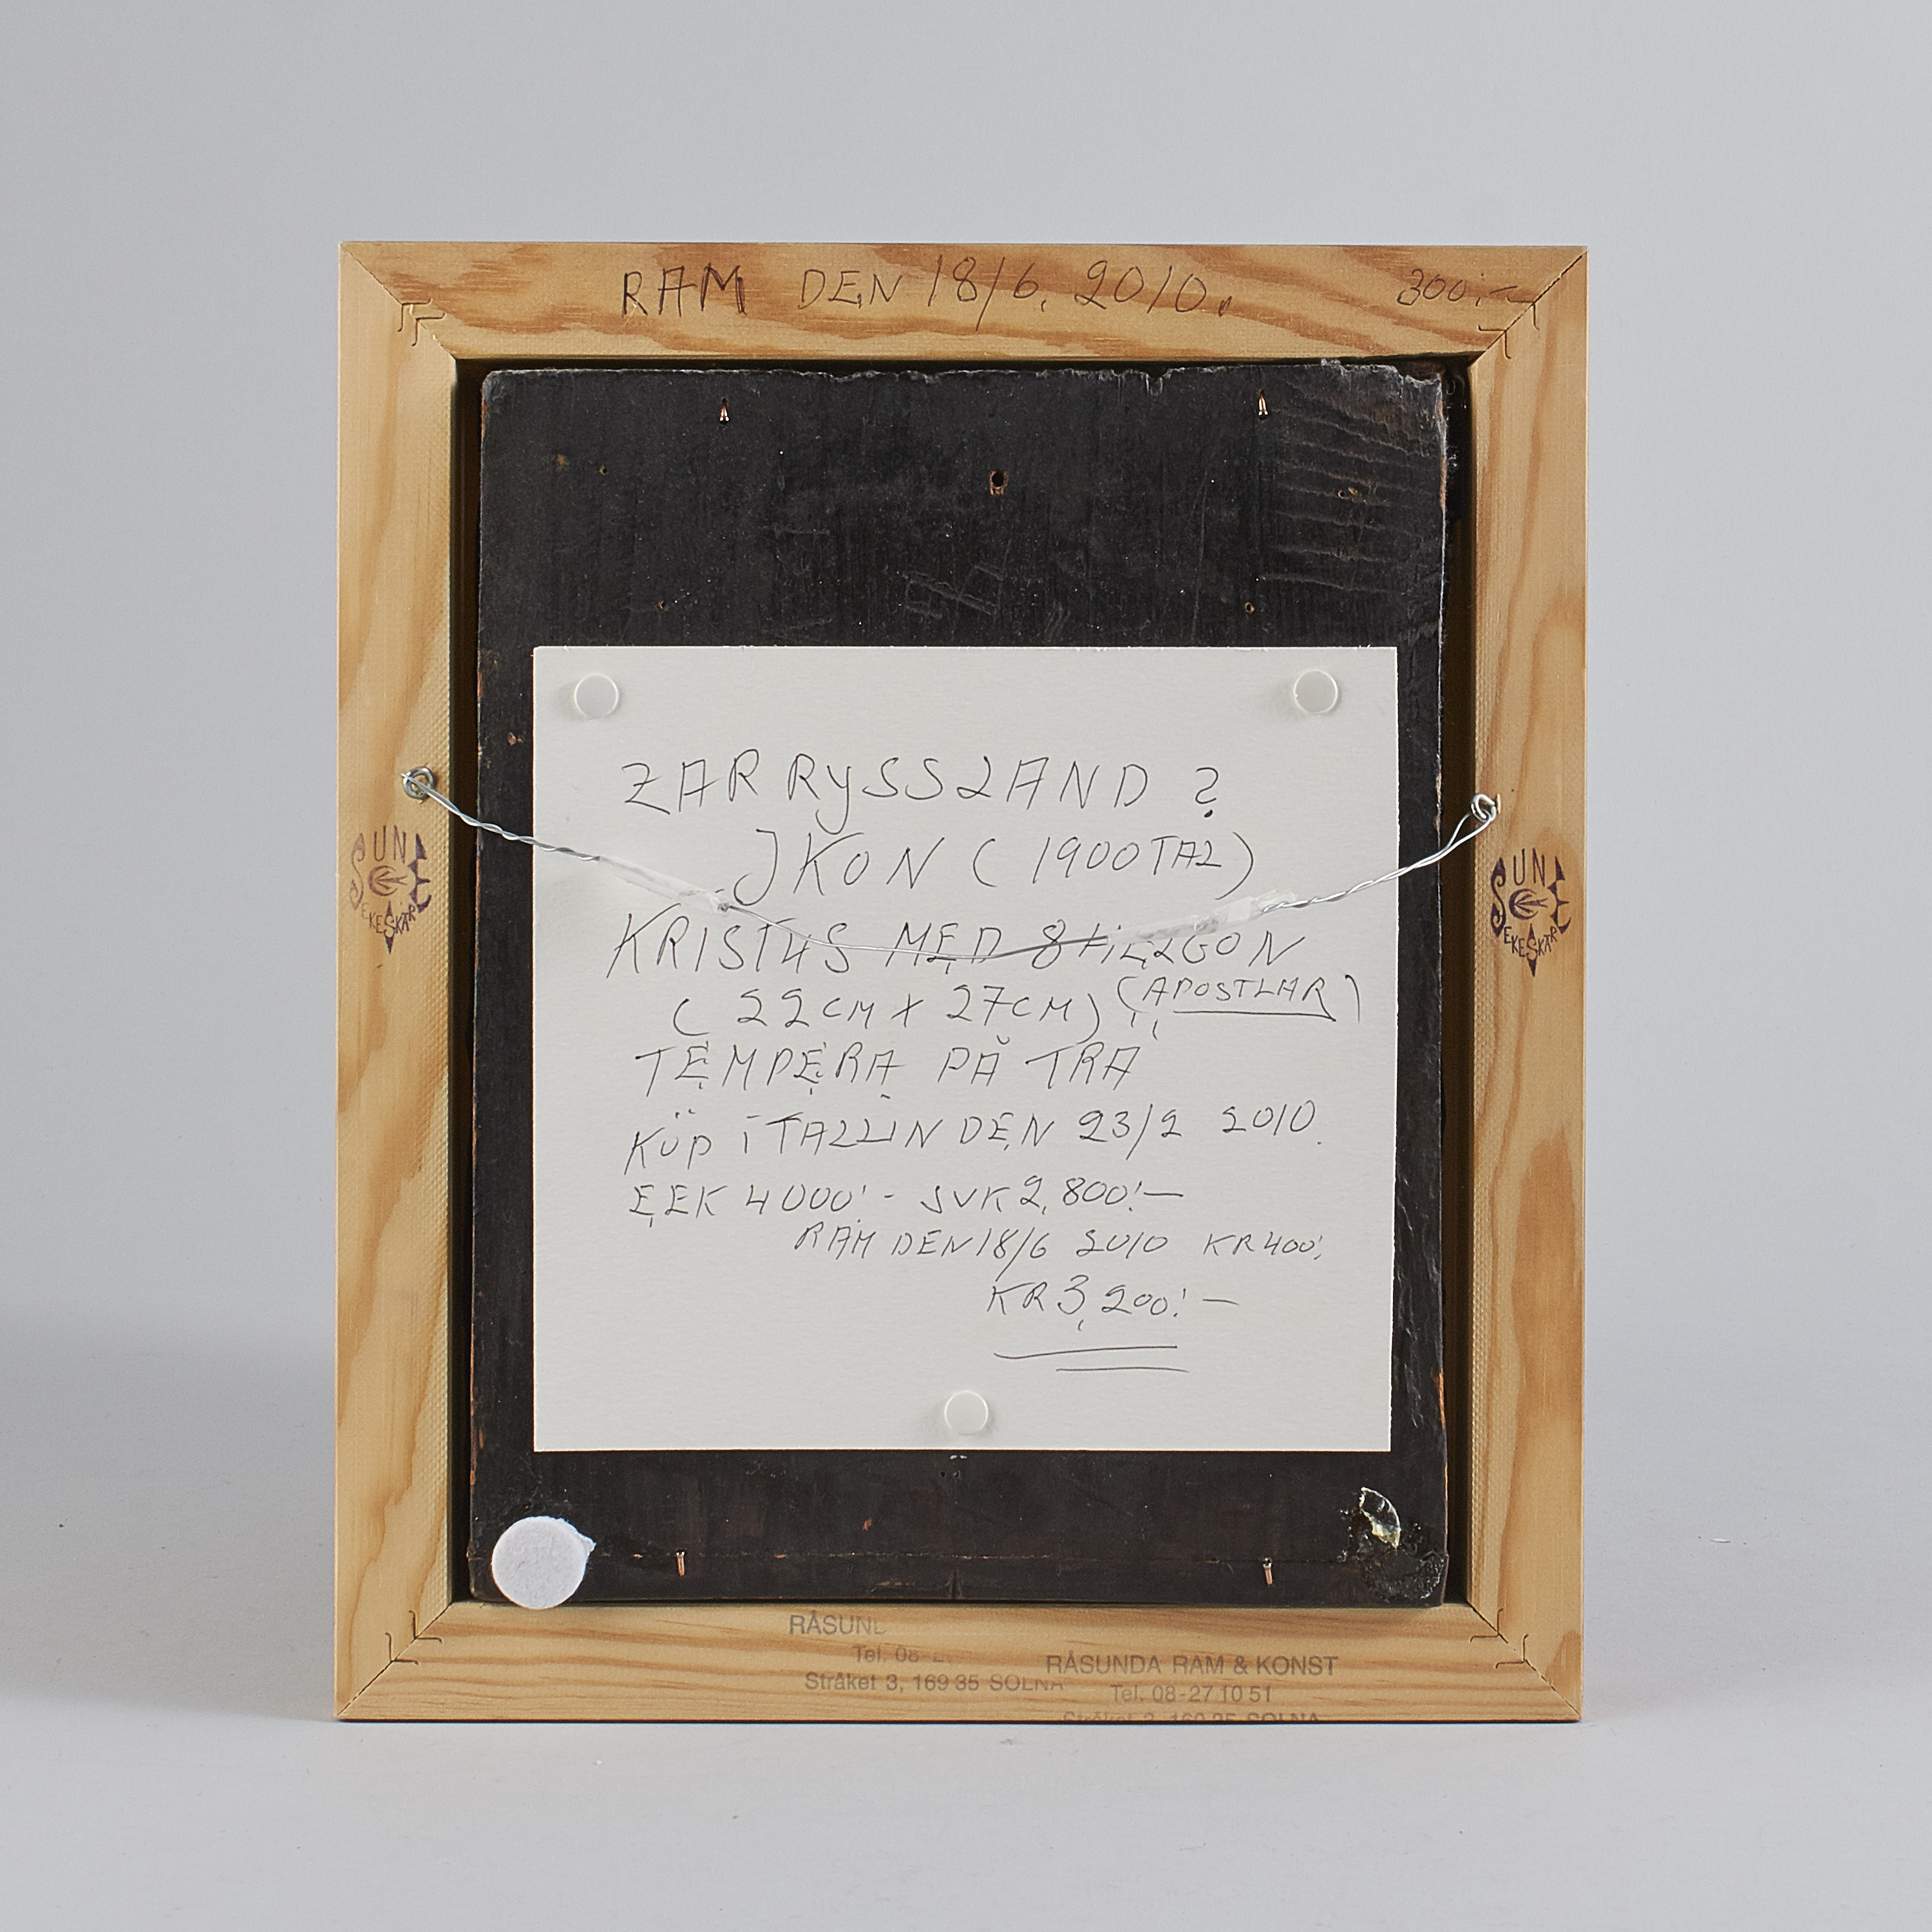 RAM DEN 18/6, 2010. 300:-
ZAR RYSSLAND ?
JKON (1900TAL)
KRISTUS MED 8 HELGON
(APOSTLAR)
(22CM X 27CM)
TEMPERA PÅ TRÄ
KÖP I TALLIN DEN 23/2 2010.
EEK 4000:- SVK 2,800:-
RAM DEN 18/6 2010 KR 400:
KR 3,200:-
SUNE
EKESKÄR
SUNE
EKESKÄR
RÅSUND
Tel. 08-2
Stråket 3, 169 35 SOLNA
RÅSUNDA RAM & KONST
Tel. 08-27 10 51
Stråket 3, 169 35 SOLNA